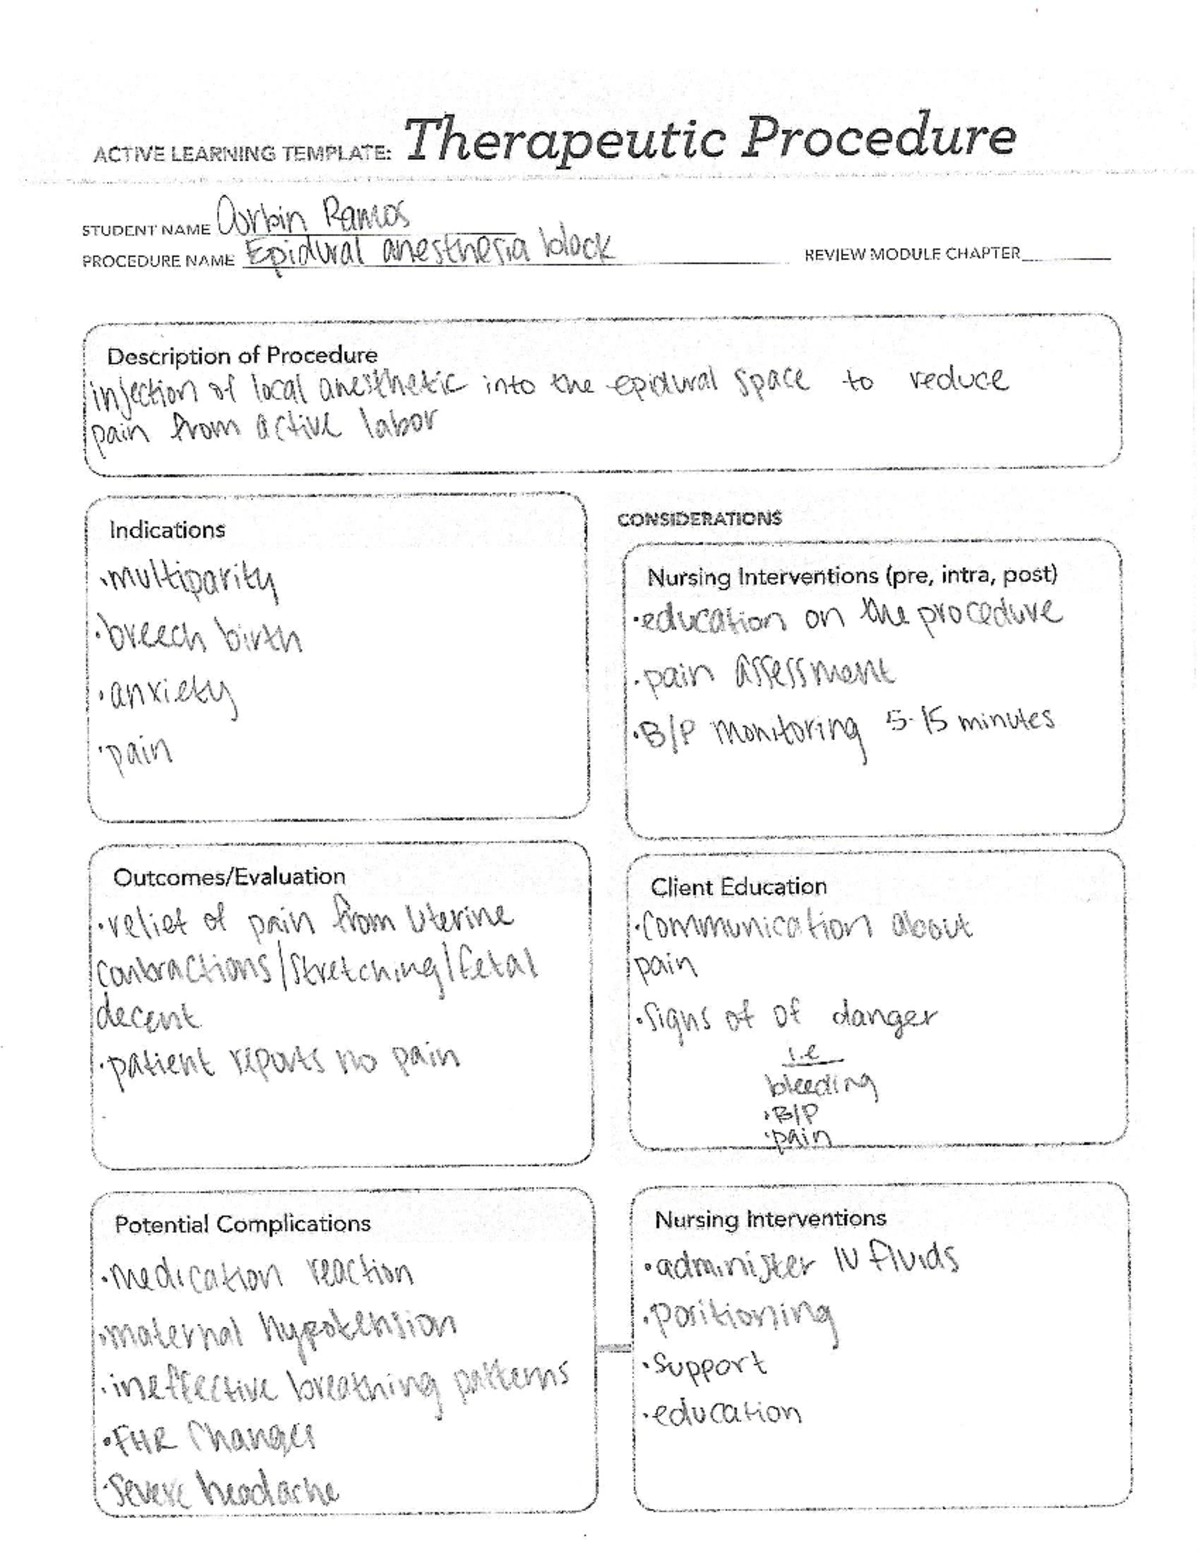 ACTIVE LEARNING TEMPLATE: Therapeutic Procedure
STUDENT NAME Durbin Ramos
PROCEDURE NAME Epidural anesthesia block
REVIEW MODULE CHAPTER
Description of Procedure
injection of local anesthetic into the epidural space to reduce
pain from active labor
Indications
•multiparity
•breech birth
•anxiety
•pain
CONSIDERATIONS
Nursing Interventions (pre, intra, post)
•education on the procedure
•pain assessment
•B/P monitoring 5-15 minutes
Outcomes/Evaluation
•relief of pain from uterine
contractions/stretching/fetal
decent
•patient reports no pain
Client Education
•communication about
pain
•signs of of danger
i.e
bleeding
•B/P
•pain
Potential Complications
•medication reaction
•maternal hypotension
•ineffective breathing patterns
•FHR changes
•severe headache
Nursing Interventions
•administer IV fluids
•positioning
•support
•education